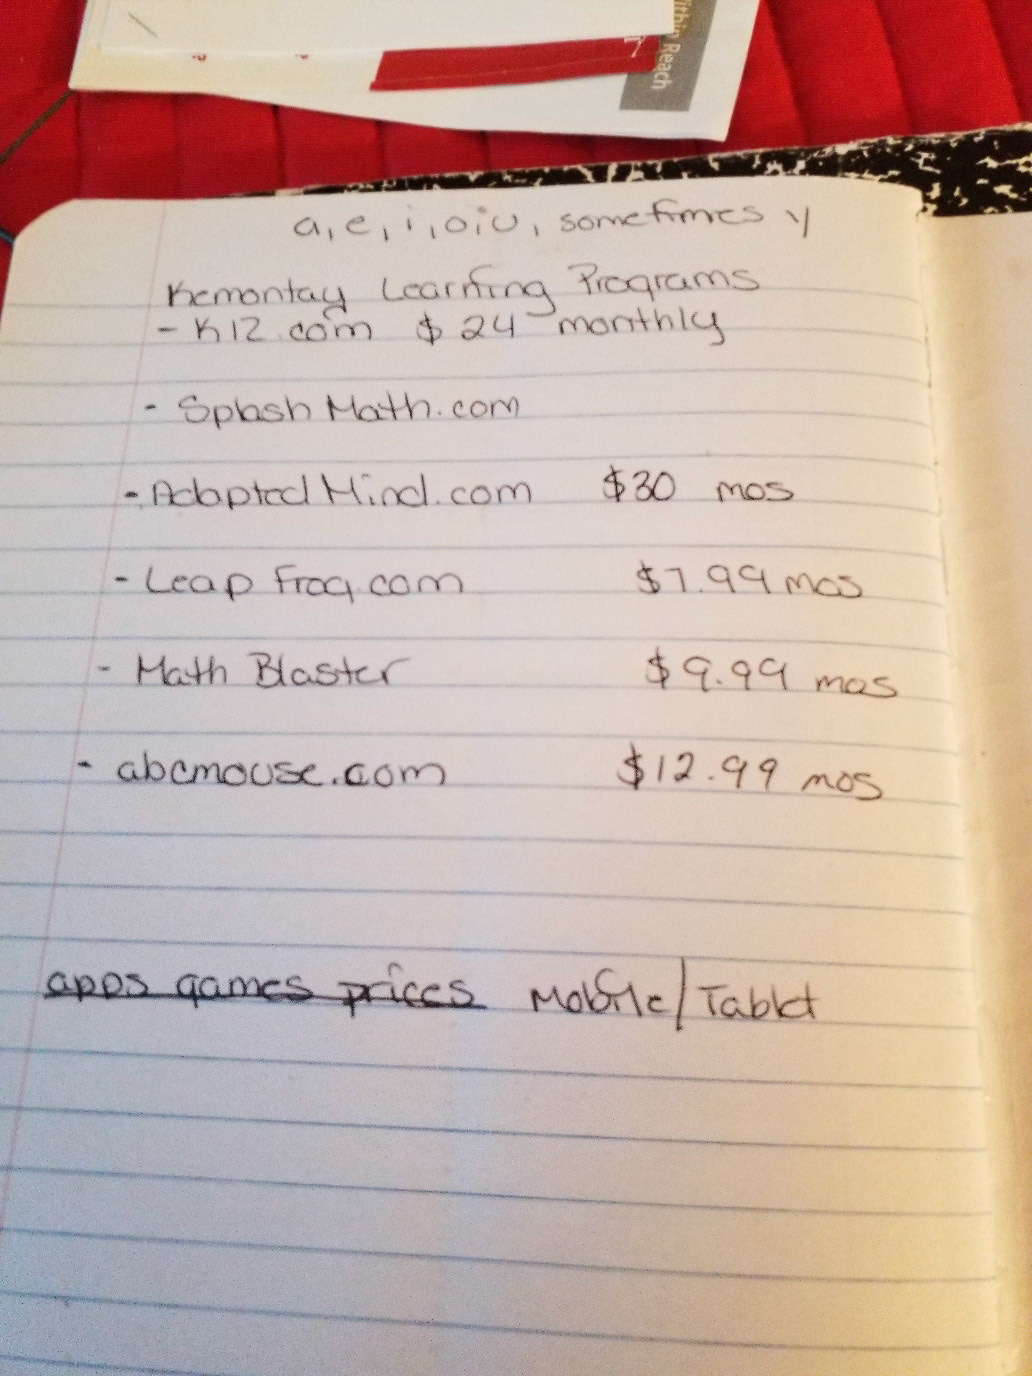 Within Reach
a, e, i, o, u, sometimes y
Kemontay Learning Programs
- K12.com $24 monthly
- Splash Math.com
- Adapted Mind.com $30 mos
- Leap Frog.com $7.99 mos
- Math Blaster $9.99 mos
- abcmouse.com $12.99 mos
apps games prices Mobile/Tablet